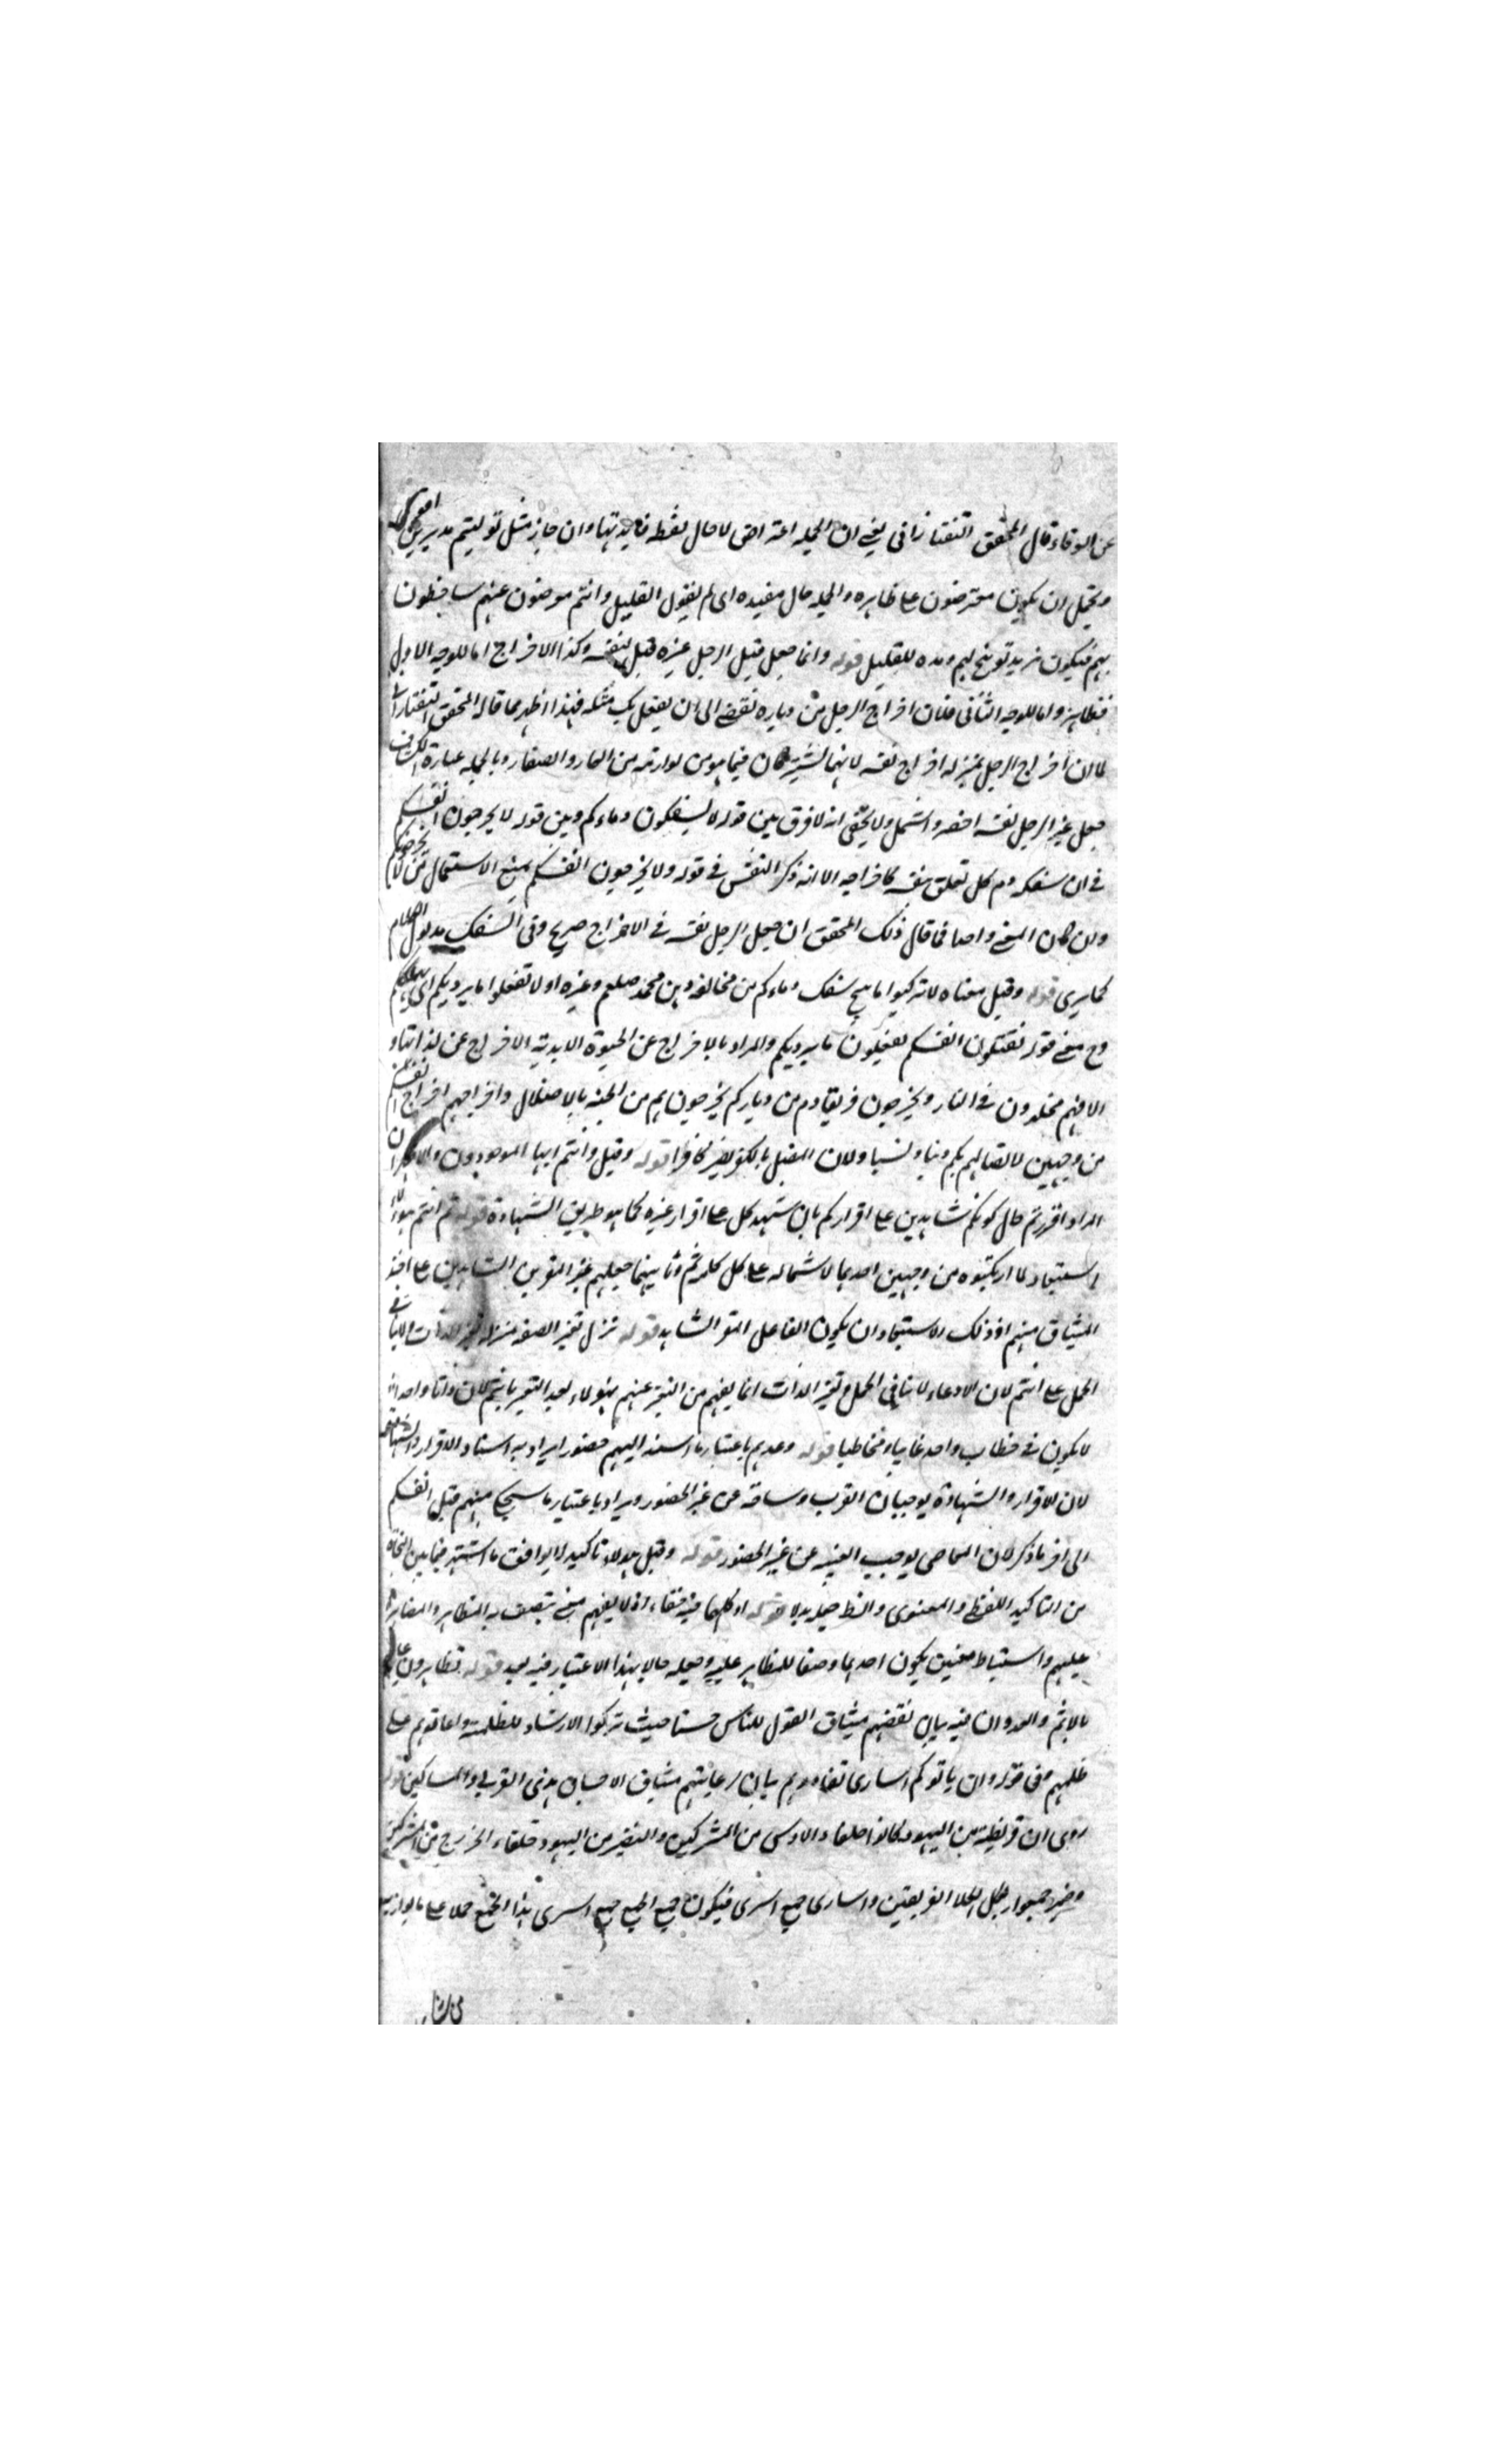 عن الوفاء قال المحقق التفتازاني يعني ان الجملة اعتراض لا حال لقلة فايدتها وان جاز مثل توليتم مدبرين
ويحتمل ان يكون معرضون على ظاهره والجملة حال مفيدة اى لم يقبول القليل وانتم معرضون عنهم ساخطون
بهم فيكون مزيد توبيخ لهم ومدح للقليل قوله وانما جعل قتل الرجل غيره قتل نفسه وكذا الاخراج اما للوجه الاول
فظاهر واما للوجه الثاني فلان اخراج الرجل من دياره تفضى الى ان يفعل بك مثله فهذا اظهر مما قاله المحقق التفتازانى
لما ان اخراج الرجل بمنزلة اخراج نفسه لانهما لشتركان فيما هو من لوازمه من العار والصغار وبالجملة عبارة الكشاف
جعل غير الرجل نفسه اخصر واشمل ولا يخفى انه لا فرق بين قوله لا يسفكون دماءكم وبين قوله لا يخرجون انفسكم
في ان سفك دم كل تعلق بنفسه كاخراجه الا انه ذكر النفس في قوله ولا يخرجون انفسكم يمنع الاستعمال من لا يخرجكم
وان كان المعنى واحدا فما قال ذلك المحقق ان جعل الرجل نفسه في الاخراج صريح وفي السفك مدلول الكلام
كما يرى قوله وقيل معناه لا ترتكبوا ما يبيح سفك دماءكم من مخالفة دين محمد صلعم وغيره او لا تفعلوا ما يرديكم اى يهلككم
وح معنى قوله تقتلون انفسكم تفعلون ما يرديكم والمراد بالاخراج عن الحيوة الابدية الاخراج عن لذاتها و
الا فهم مخلدون في النار ويخرجون فريقا دم من دياركم يخرجون هم من الجنة بالاضلال واخراجهم اخراج انفسكم
من وجهين لاتصالهم بكم دينا ونسبا ولان المضل بالكفر يصير كافرا قوله وقيل وانتم ايها الموجودون والاقرار ان
المراد اقررتم حال كونكم شاهدين على اقراركم بان شهد كل على اقرار غيره كما هو طريق الشهادة قوله ثم انتم هؤلاء
استبعاد لما ارتكبوه من وجهين احدهما لاشتماله على كل كلمة ثم وثانيهما جعلهم غير المقرين الشاهدين على اخذ
الميثاق منهم اذ ذلك الاستبعاد ان يكون الفاعل المقر الشاهد قوله نزل تغير الصفة منزلة تغير الذات والباء في
الحمل على انتم لان الادعاء لا ينافى الحمل وتغير الذات انما يفهم من التعبر عنهم بهؤلاء بعد التعبير بانتم لان ذاتا واحدا
لا يكون في خطاب واحد غايبا ومخاطبا قوله وعدهم باعتبار ما اسند اليهم حضورا يراد به اسناد الاقرار والشهادة
لان الاقرار والشهادة يوجبان القرب ومسافة عن غير الحضور ويراد باعتبار ما سيحكى منهم قتل انفسكم
الى اخر ما ذكر لان المعاصى يوجب الغيبة عن غير الحضور قوله وقيل هؤلاء تاكيد لا يوافق ما اشتهر فيما بين النحاة
من التاكيد اللفظى والمعنوى والظ جعله بدلا قوله او كلهما فيه خفاء اذ لا يفهم معنى يتصف به المتظاهر والمتظاهر
عليهم واستنباط معنيين يكون احدهما وصفا للمتظاهر عليه وجعله حالا بهذا الاعتبار فيه بعد قوله تظاهرون عليهم
بالاثم والعدوان فيه بيان نقضهم ميثاق القول للناس حسنا حيث تركوا الارشاد للظلمة واعانوهم على
ظلمهم وفى قوله وان ياتوكم اسارى تفادوهم بيان رعايتهم ميثاق الاحسان بذى القربى والمساكين قوله
روى ان قريظة من اليهود كانوا حلفاء الاوس من المشركين والنضير من اليهود حلفاء الخزرج من المشركين
وضمير جمعوا لكلا الفريقين واسارى جمع اسرى فيكون جمع الجمع جمع اسرى بهذا الجمع حملا على ما يوازيه